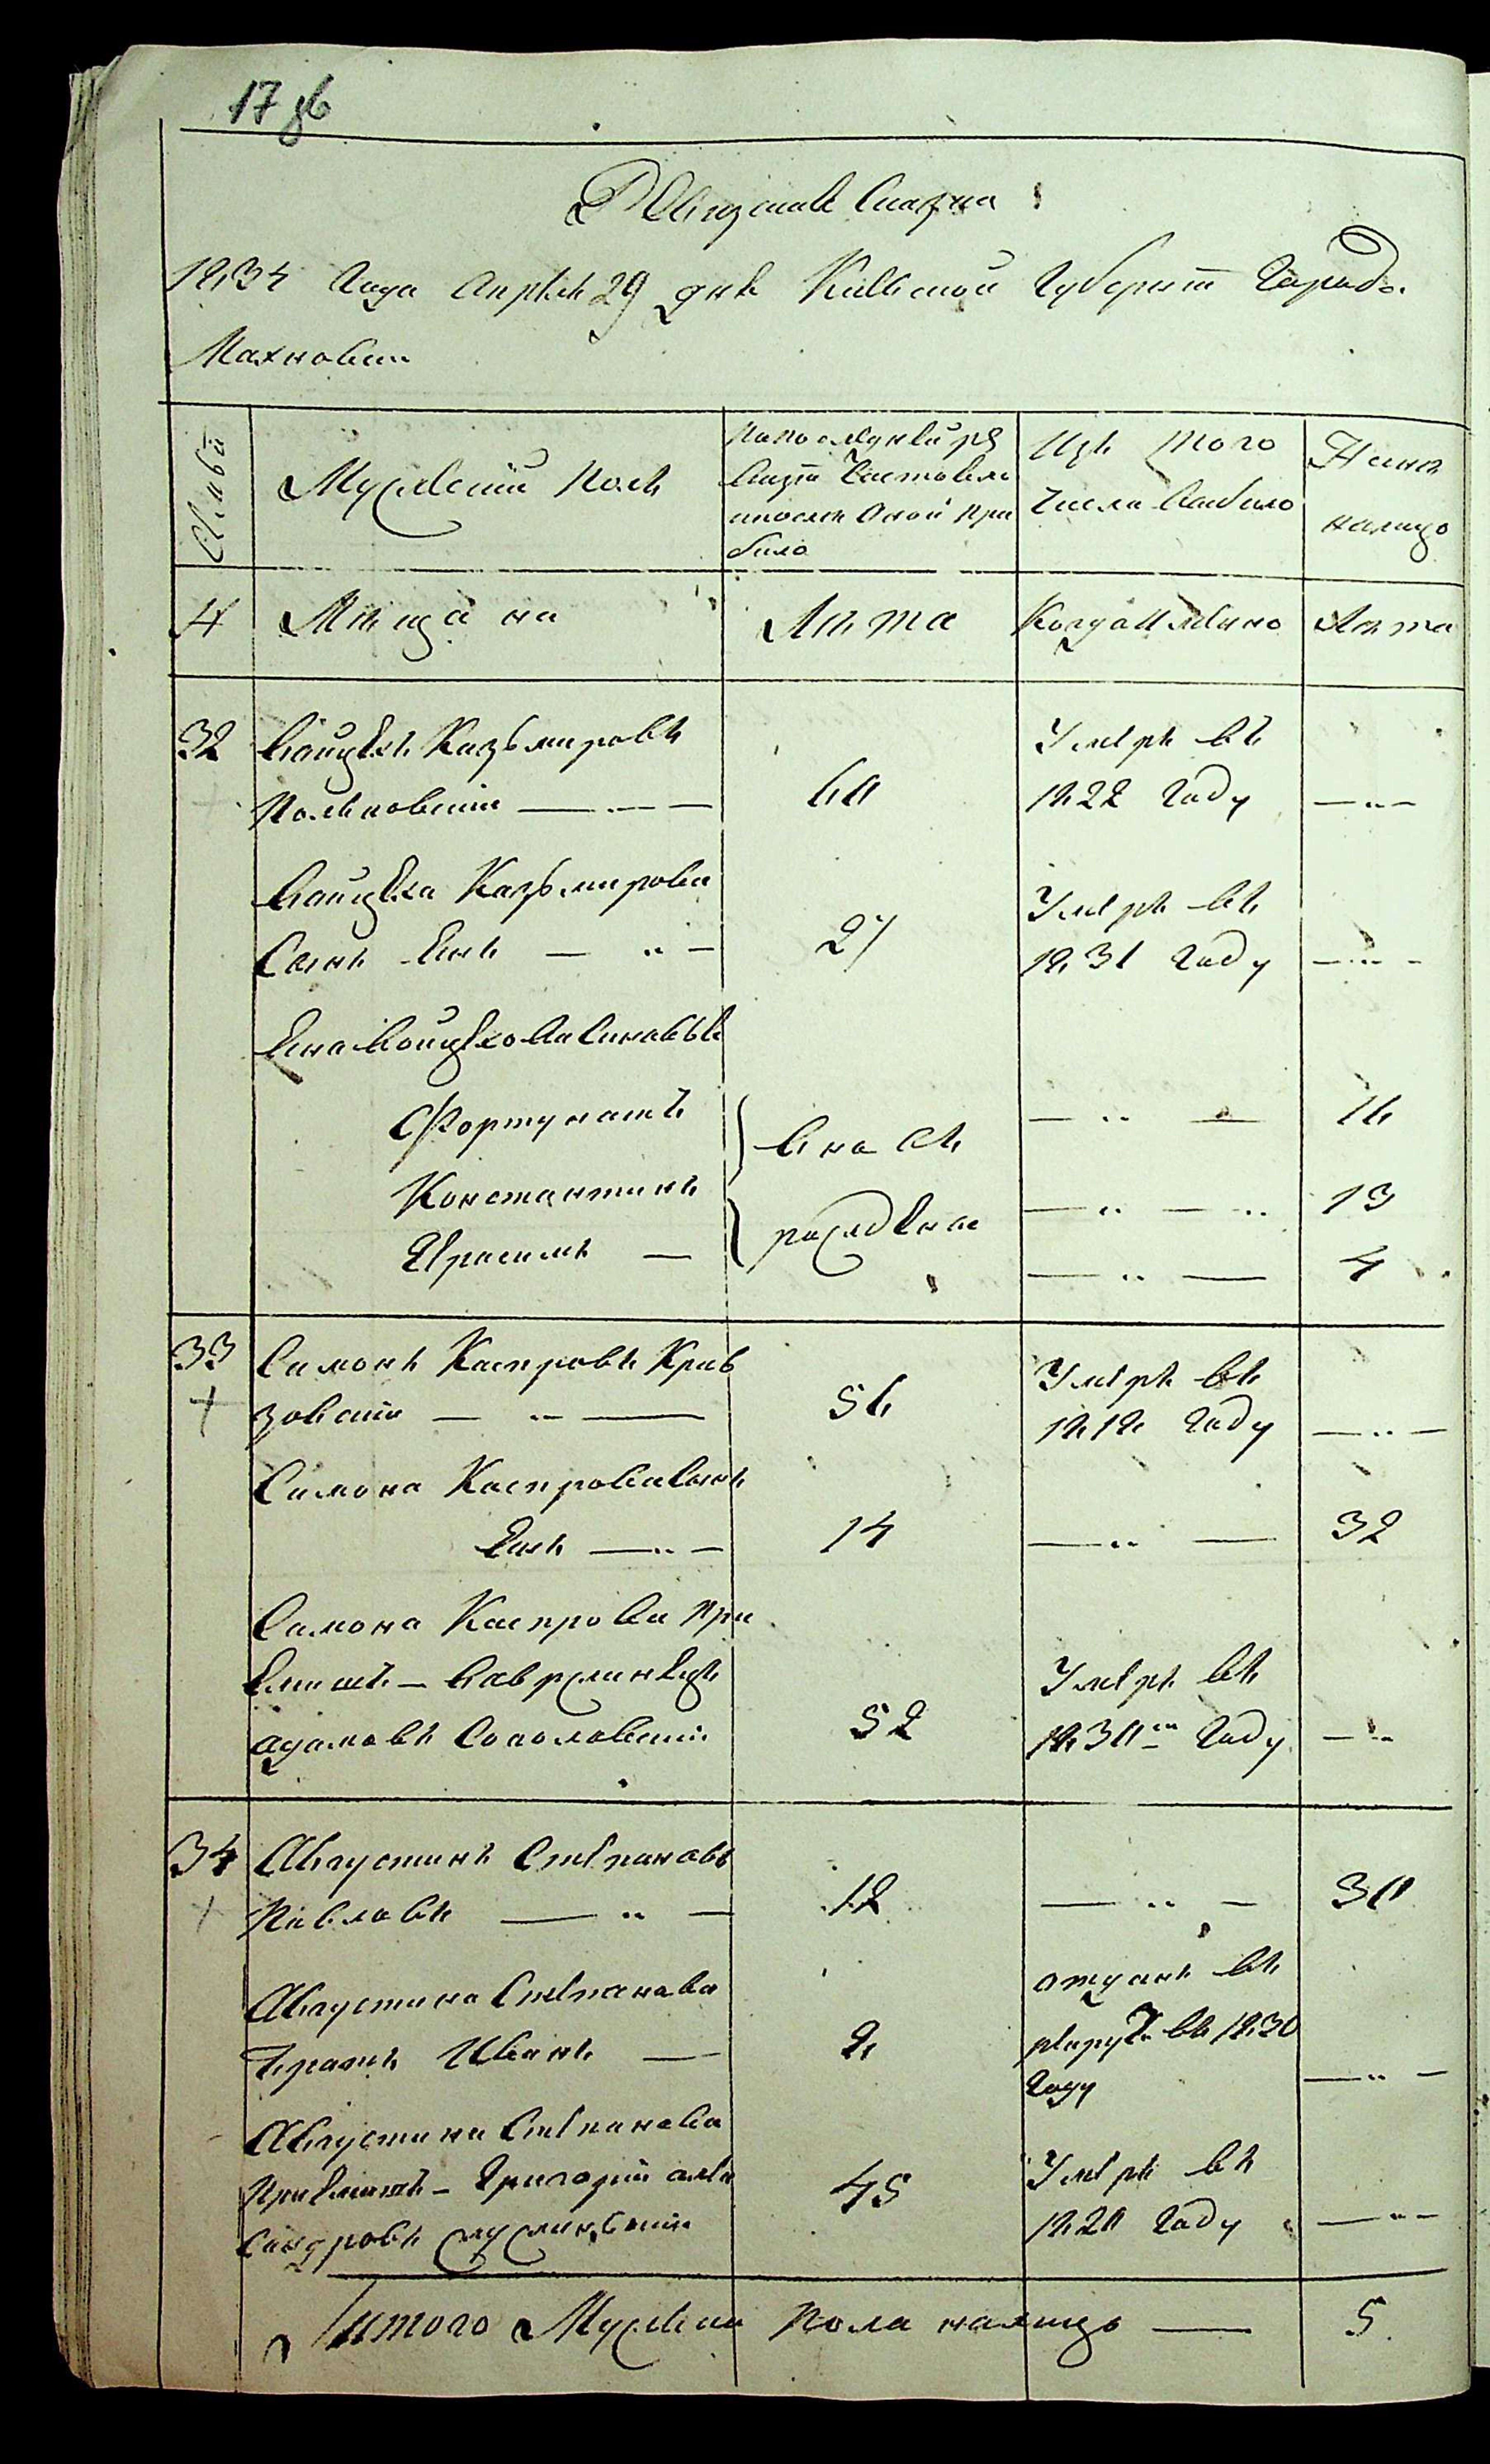 17 зв
Ревизская Сказка
1834 Года Апреля 29 дня Киевской Губернiи Города
Махновки
Семьи
Мужеский Полъ
По последней ре
визiи состояло
и после оной при
было
Изъ того
числа выбыло
Ныне
налицо
4 Мещане
Лета
Когда именно
Лета
32 Войцехъ Казьмировъ
60
Умеръ въ
1822 Году
Войцеха Казьмирова
Сынъ Янъ
27
Умеръ въ
1831 Году
Яна Войцехова Сыновья
Фортунатъ
вновь
16
Константинъ
рожденые
13
Герасимъ
4
33 Симонъ Каспровъ
56
Умеръ въ
1818 Году
Симона Каспрова Сынъ
14
32
Симона Каспрова при
емышъ
Адамовъ Соколовскiй
52
Умеръ въ
1830 Году
34 Августинъ Степановъ
Павловъ
12
30
Августина Степанова
братъ Иванъ
8
отданъ въ
рекруты въ 1830
Году
Августина Степанова
Приемышъ Григорiй Алек
сандровъ
45
Умеръ въ
1820 Году
Итого Мужеска Пола налицо 5